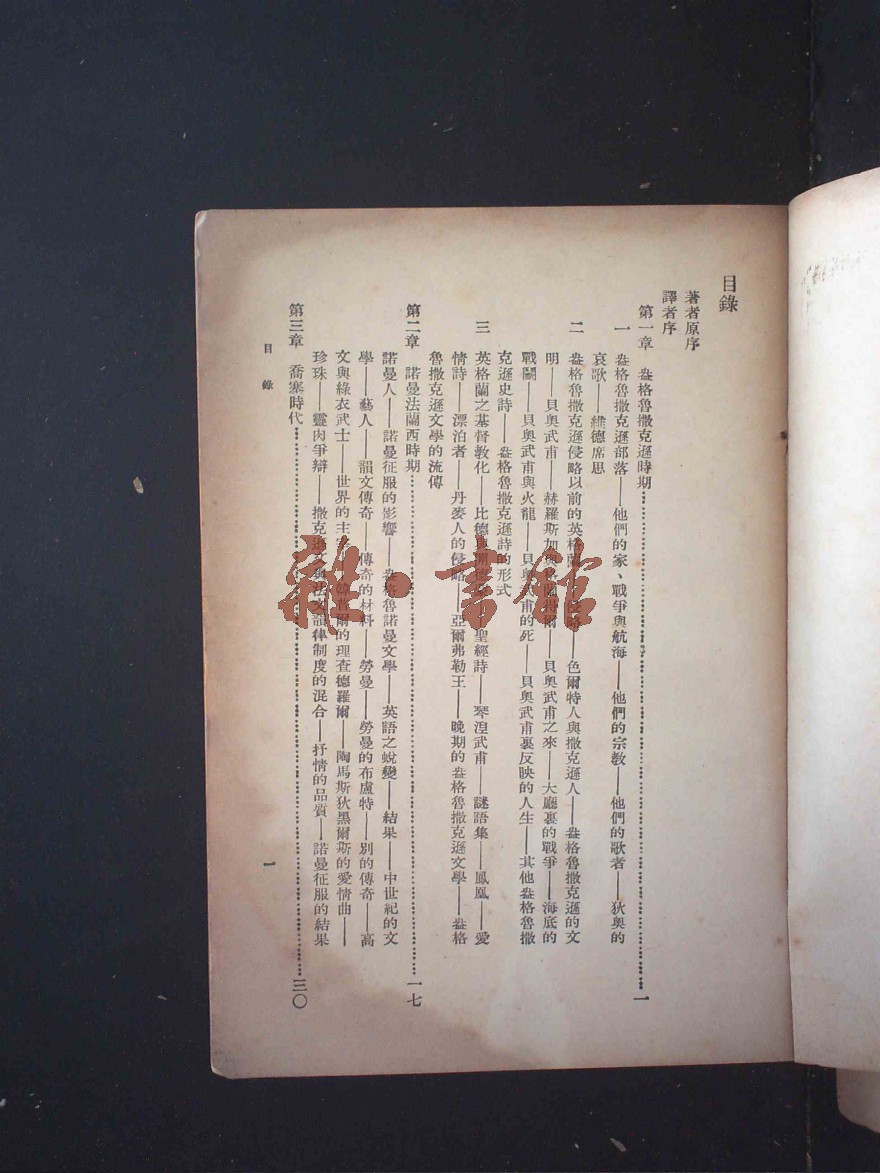 目錄
著者原序
譯者序
第一章 盎格魯撒克遜時期………一
一 盎格魯撒克遜部落——他們的家、戰爭與航海——他們的宗教——他們的歌者——狄奧的
哀歌——維德席思
二 盎格魯撒克遜侵略以前的英格蘭——侵略——色爾特人與撒克遜人——盎格魯撒克遜的文
明——貝奧武甫——赫羅斯加與格蘭得爾——貝奧武甫之來——大廳裏的戰爭——海底的
戰鬬——貝奧武甫與火龍——貝奧武甫的死——貝奧武甫裏反映的人生——其他盎格魯撒
克遜史詩——盎格魯撒克遜詩的形式
三 英格蘭之基督教化——比德——聖經詩——琴湼武甫——謎語集——鳳凰——愛
情詩——漂泊者——丹麥人的侵略——亞爾弗勒王——晚期的盎格魯撒克遜文學——盎格
魯撒克遜文學的流傳
第二章 諾曼法蘭西時期………一七
諾曼人——諾曼征服的影響——盎格魯諾曼文學——英語之蛻變——結果——中世紀的文
學——藝人——韻文傳奇——傳奇的材料——勞曼——勞曼的布盧特——別的傳奇——高
文與綠衣武士——世界的主——韓普爾的理查德羅爾——陶馬斯狄黑爾斯的愛情曲——
珍珠——靈肉爭辯——撒克遜文與法文韻律制度的混合——抒情的品質——諾曼征服的結果
第三章 喬塞時代………三〇
目錄
一
雜·書館